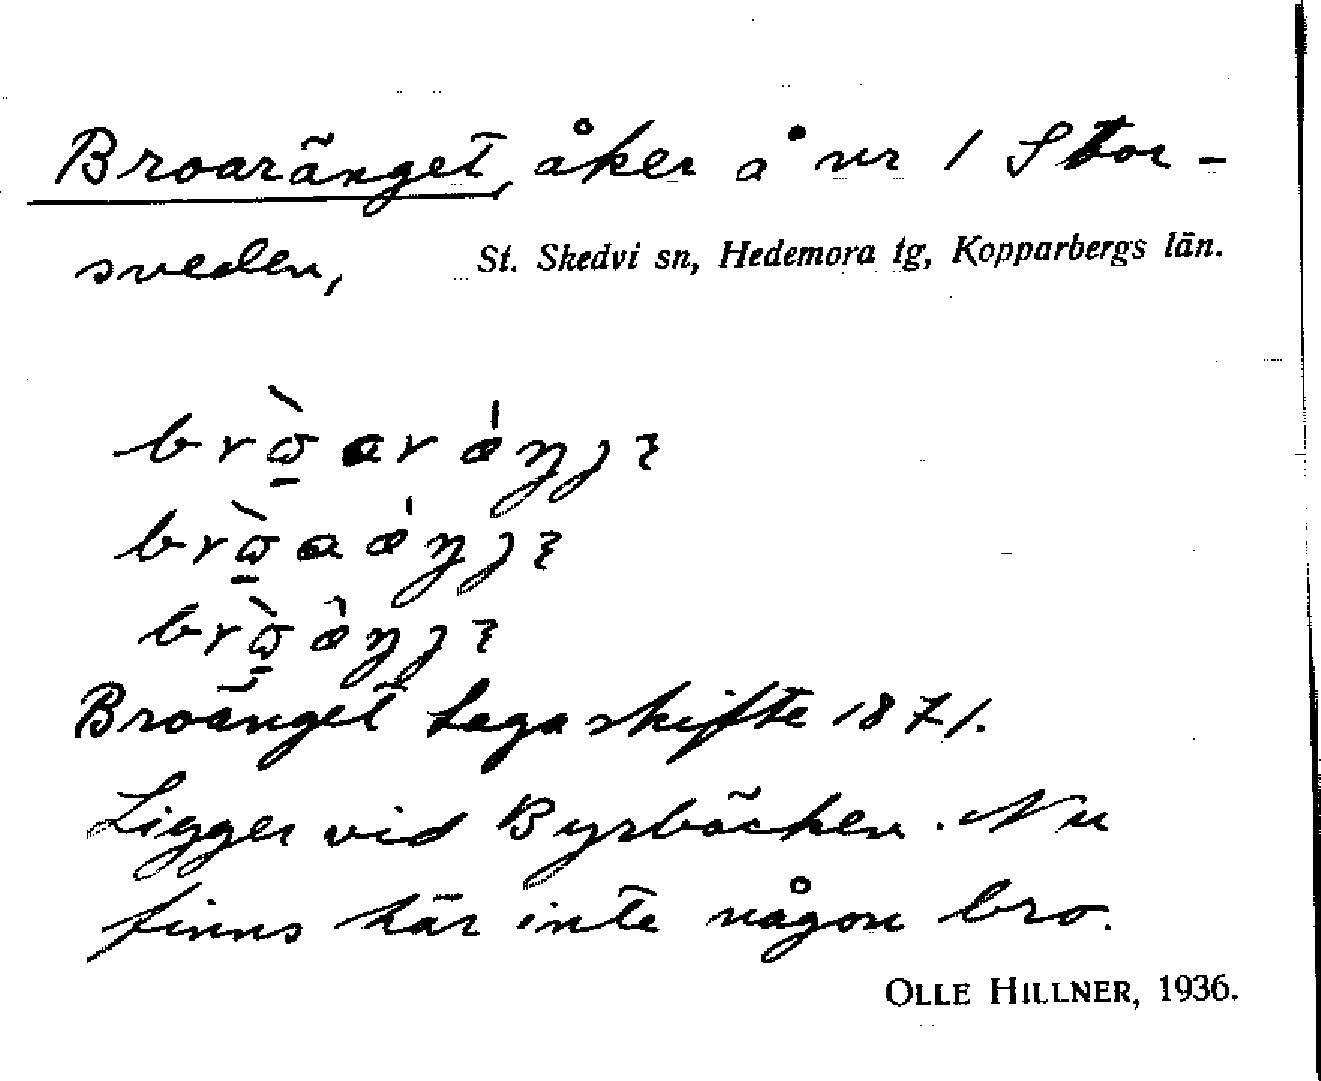 Broaränget, åker å nr 1 Stor-
sveden, St. Skedvi sn, Hedemora tg, Kopparbergs län.
Broänget Laga skifte 1871.
Ligger vid Byrbäcken. Nu
finns här inte någon bro.
OLLE HILLNER, 1936.